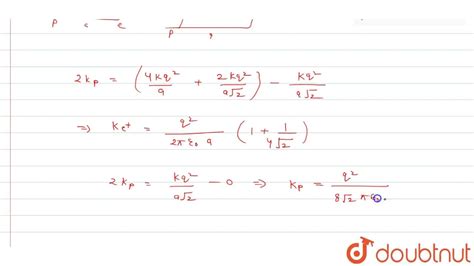 p e
p ,
2kₚ = (4kq²/a + 2kq²/a√2) − kq²/a√2
⇒ Kₑ⁺ = q²/2πε₀ a (1 + 1/4√2)
2kₚ = kq²/a√2 − 0 ⇒ kₚ = q²/8√2 π
doubtnut